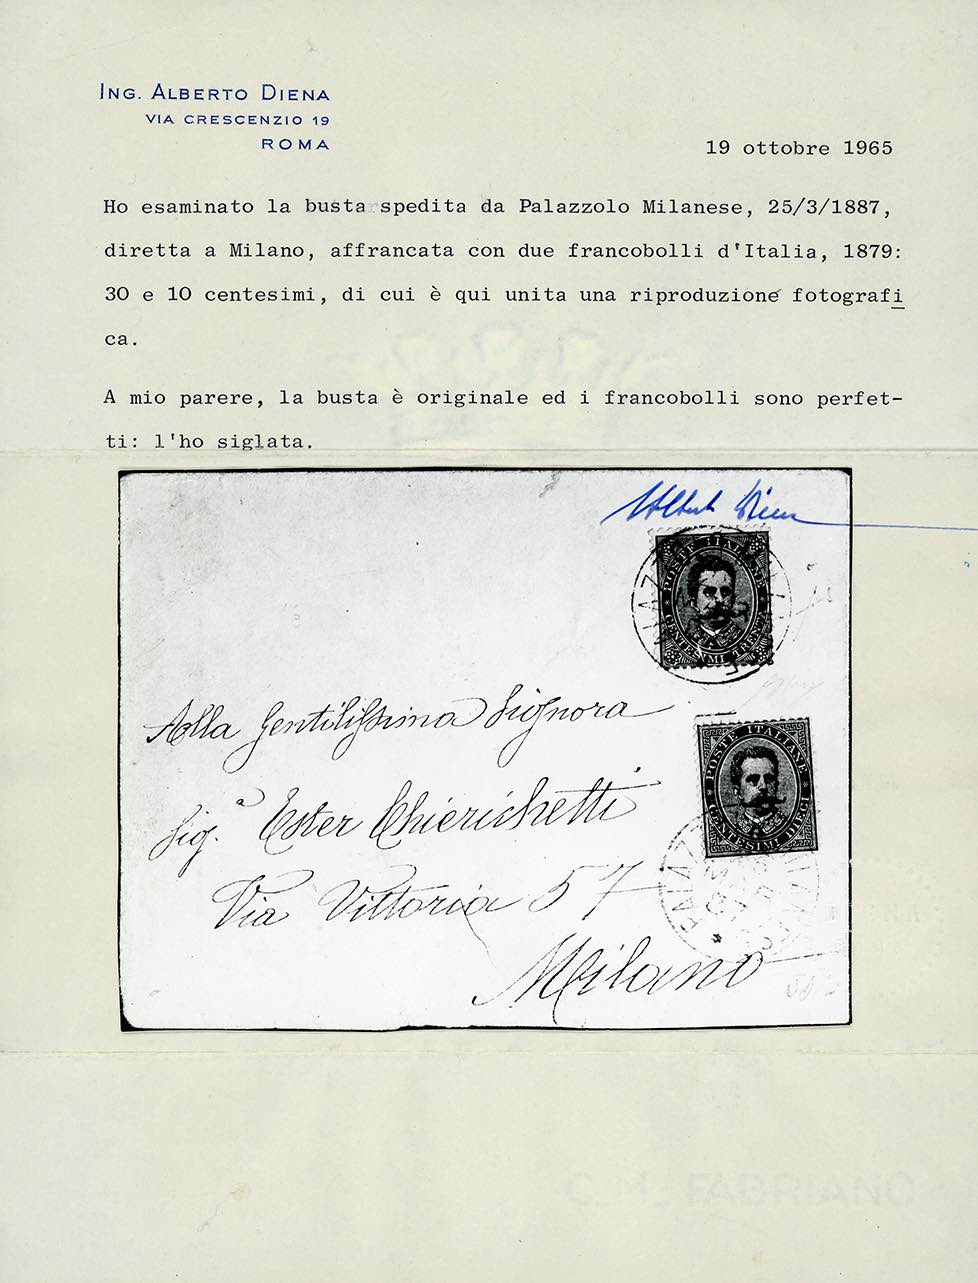 ING. ALBERTO DIENA
VIA CRESCENZIO 19
ROMA
19 ottobre 1965
Ho esaminato la busta spedita da Palazzolo Milanese, 25/3/1887,
diretta a Milano, affrancata con due francobolli d'Italia, 1879:
30 e 10 centesimi, di cui è qui unita una riproduzione fotografi
ca.
A mio parere, la busta è originale ed i francobolli sono perfet-
ti: l'ho siglata.
Alberto Diena
POSTE ITALIANE
CENTESIMI TRENTA
Alla Gentilissima Signora
POSTE ITALIANE
CENTESIMI DIECI
Sig.a Ester Chierichetti
Via Vittoria 57
Milano
C.M. FABRIANO